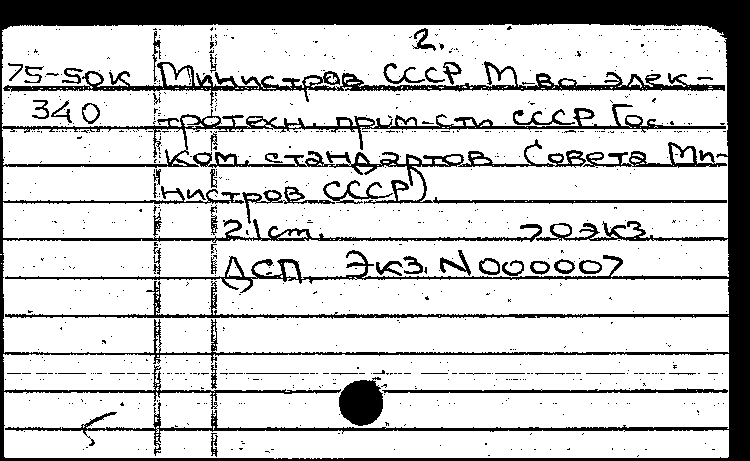 2.
75-50к Министров СССР. М-во элек-
340 тротехн. пром-сти СССР. Гос.
ком. стандартов Совета Ми-
нистров СССР).
21 cm. 70 экз.
ДСП. Экз. N000007